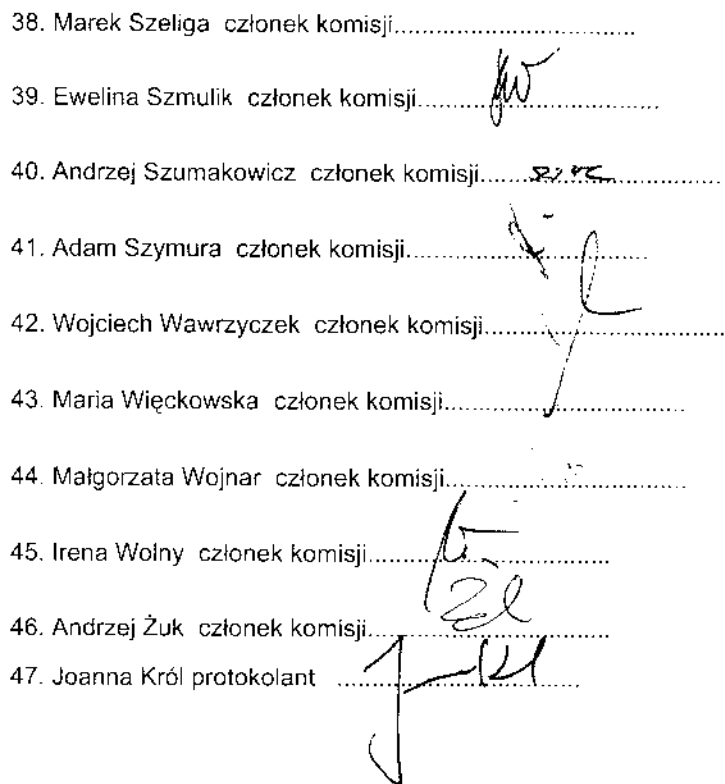 38. Marek Szeliga członek komisji..............................
39. Ewelina Szmulik członek komisji..............................
40. Andrzej Szumakowicz członek komisji..............................
41. Adam Szymura członek komisji..............................
42. Wojciech Wawrzyczek członek komisji..............................
43. Maria Więckowska członek komisji..............................
44. Małgorzata Wojnar członek komisji..............................
45. Irena Wolny członek komisji..............................
46. Andrzej Żuk członek komisji..............................
47. Joanna Król protokolant ..............................